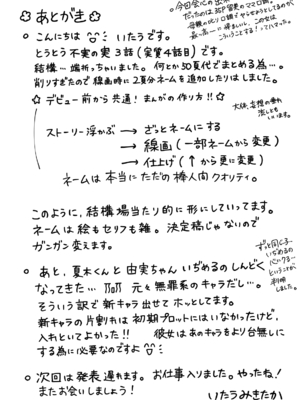 ✩ あとがき ✩
今回会心の出来
だったのは、35P留置のママ口調。
こんにちは いたうです。
とうとう不実の実3話(実質4話目)です。
結構…端折っちゃいました。何とか30頁代でまとめる為…。
削りすぎたので線画時に2頁分ネームを追加したりしました。
☆デビュー前から共通!まんがの作り方!!☆
大体、妄想の垂れ
流しとも
いいます。
ストーリー浮かぶ → ざっとネームにする
→ 線画(一部ネームから変更)
→ 仕上げ(↑から更に変更)
ネームは本当にただの棒人間クオリティ。
このように、結構場当たり的に形にしていってます。
ネームは絵もセリフも雑。決定稿じゃないので
ガンガン変えます。
ずっと同じ子
いぢめるの
ということが
判明
しました。
○ あと、夏木くんと由実ちゃんいぢめるのしんどく
なってきた… 元々無罪系のキャラだし…。
そういう訳で新キャラ出せてホッとしてます。
新キャラの片割れは初期プロットにはいなかったけど、
入れといてよかった!! 彼女はあのキャラをより台無しに
する為に必要なのですよ
○ 次回は発表遅れます。お仕事入りました。やったね!
またお会いしましょう!
いたうみきたか